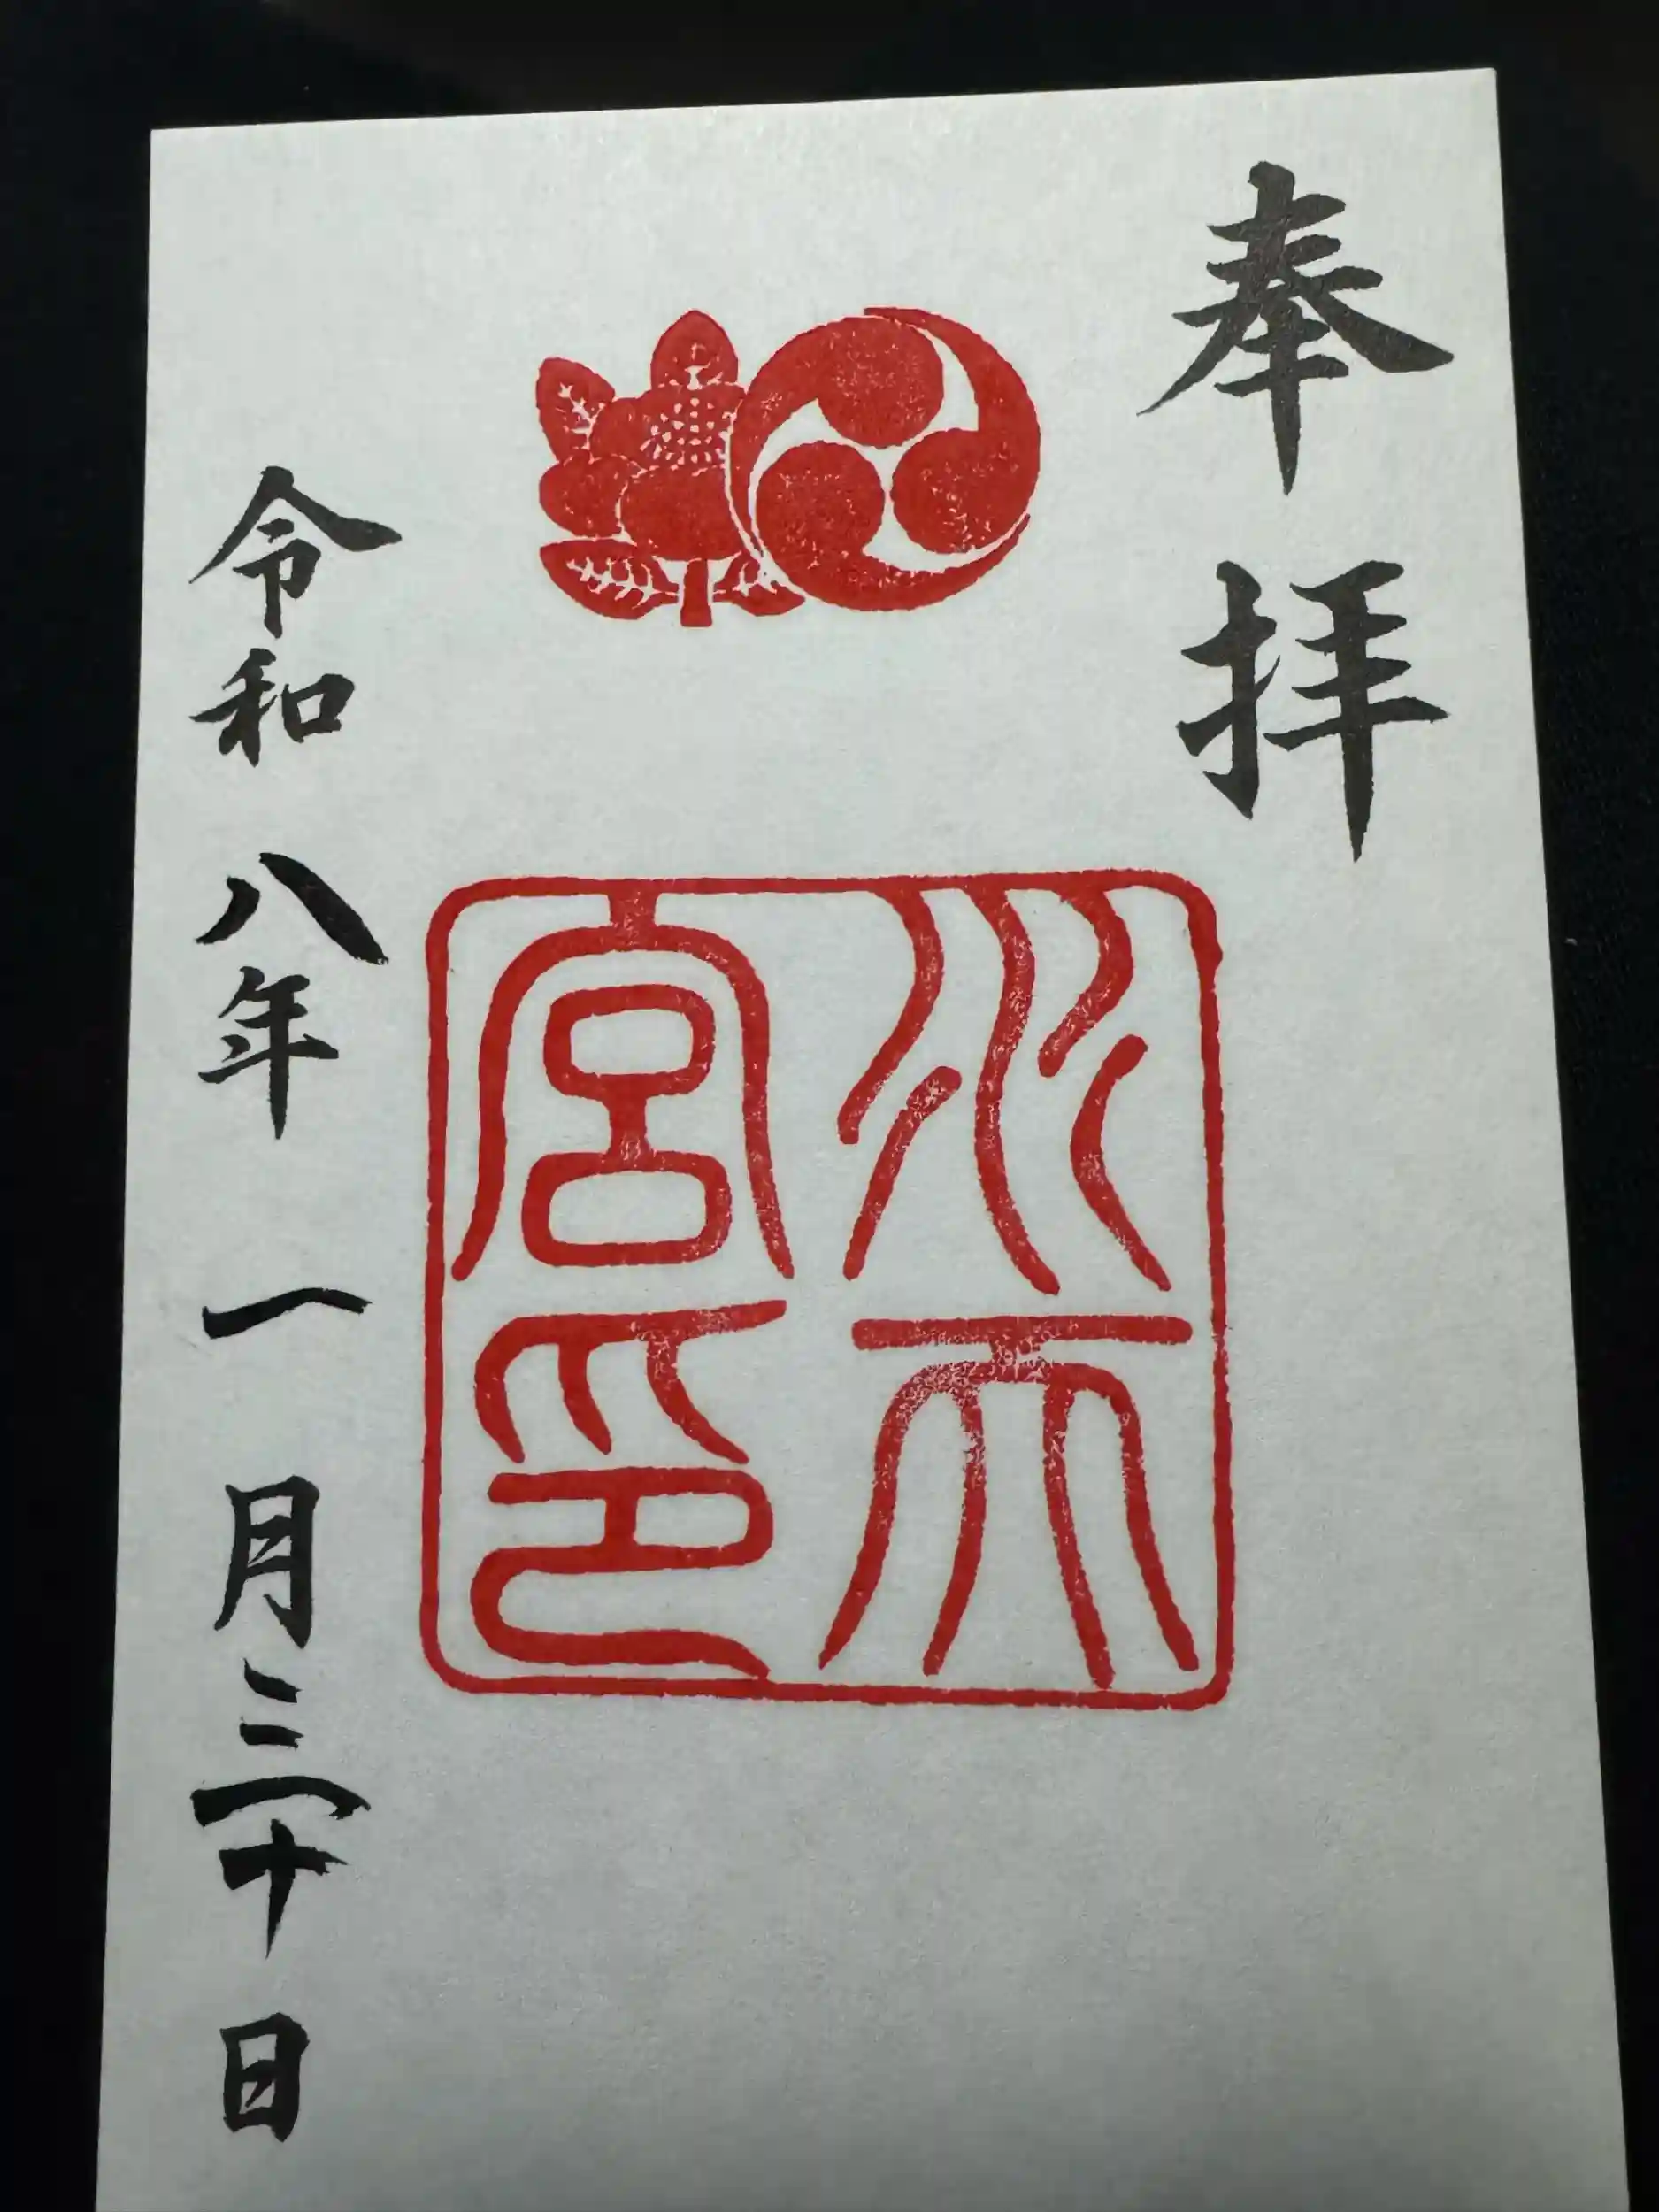 奉拝
水天
宮印
令和八年一月三十日